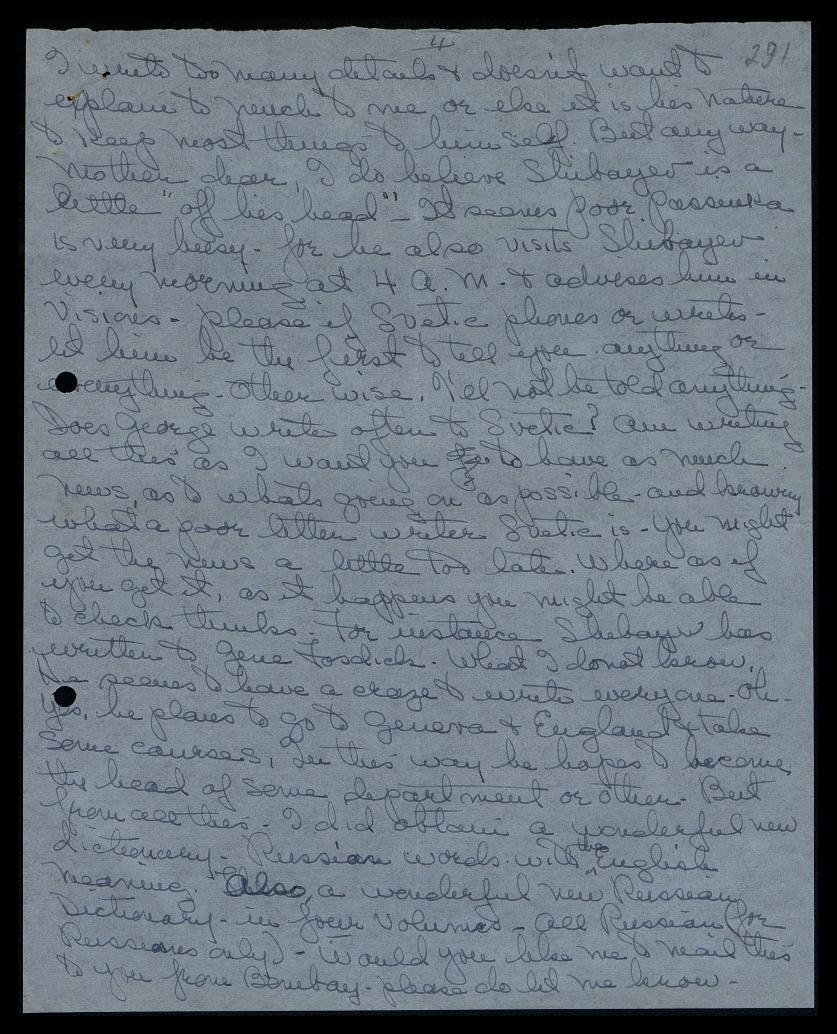 4
291
I write too many details & doesn't want to
explain to much to me or else it is his nature
to keep most things to himself. But any way -
Mother dear, I do believe Shibayev is a
little "off his head" - It seems poor Passenka
is very busy - for he also visits Shibayev
every morning at 4 A.M. & advises him in
Visions - please if Svetic phones or writes -
let him be the first to tell you anything or
everything - other wise, I'll not be told anything -
Does George write often to Svetic? Am writing
all this as I want you to have as much
news, as to whats going on as possible - and knowing
what a poor letter writer Svetic is - you might
get the news a little too late. Where as if
you get it, as it happens you might be able
to check thinks. For instance Shibayev has
written to Gene Fosdick. What I donot know.
He seems to have a craze to write everyone - Oh -
Yes, he plans to go to Geneva & England & take
some courses, In this way he hopes to become
the head of some department or other - But
from all this - I did obtain a wonderful new
Dictionary - Russian words with the English
meaning. Also, a wonderful new Russian
Dictionary - in four Volumes - all Russian (for
Russians only) - Would you like me to mail this
to you from Bombay - please do let me know -